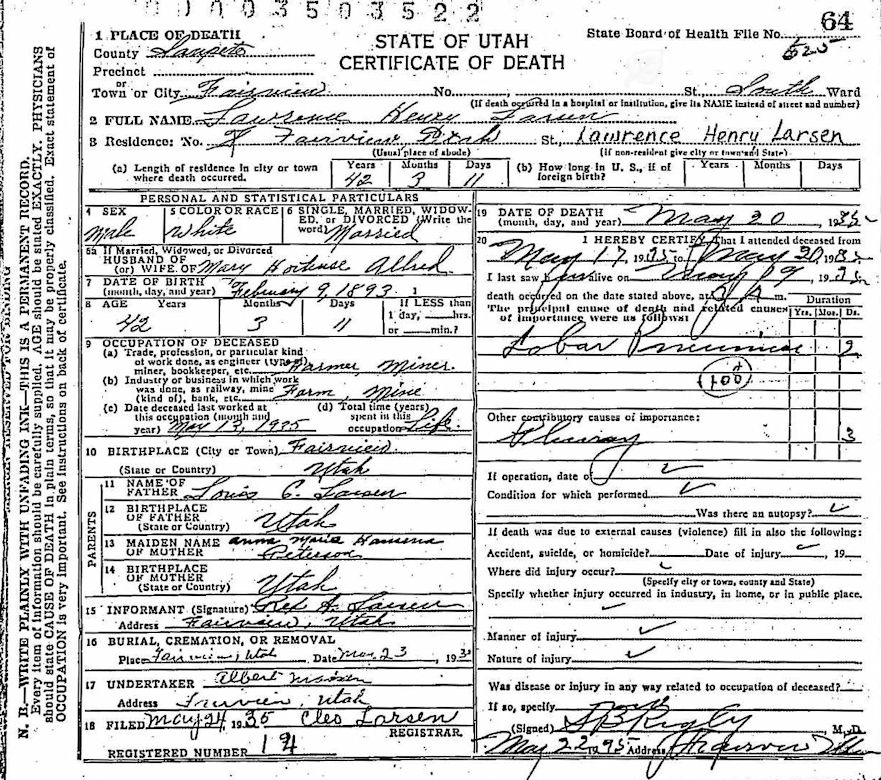 0003503522
64
1 PLACE OF DEATH
County Sanpete
Precinct
Town or City Fairview No. St. South Ward
STATE OF UTAH
CERTIFICATE OF DEATH
State Board of Health File No.
525
(If death occurred in a hospital or institution, give its NAME instead of street and number)
2 FULL NAME Lawrence Henry Larsen
3 Residence: No. Fairview, Utah St., Lawrence Henry Larsen
(Usual place of abode) (If non-resident give city or town and State)
(a) Length of residence in city or town where death occurred. Years 42 Months 3 Days 11
(b) How long in U. S., if of foreign birth? Years Months Days
PERSONAL AND STATISTICAL PARTICULARS
4 SEX Male
5 COLOR OR RACE White
6 SINGLE, MARRIED, WIDOWED. or DIVORCED (Write the word) Married
5a If Married, Widowed, or Divorced
HUSBAND OF
(or) WIFE OF Mary Hortense Allred
7 DATE OF BIRTH
(month, day, and year) February 9, 1893
8 AGE Years Months Days If LESS than
42 3 11 1 day, hrs.
or min.?
9 OCCUPATION OF DECEASED
(a) Trade, profession, or particular kind
of work done, as engineer (type of
miner, bookkeeper, etc. Farmer, Miner.
(b) Industry or business in which work
was done, as railway, mine
(kind of), bank, etc. Farm, Mine
(c) Date deceased last worked at
this occupation (month and
year) May 13, 1935
(d) Total time (years)
spent in this
occupation Life.
10 BIRTHPLACE (City or Town) Fairview
(State or Country) Utah
PARENTS
11 NAME OF
FATHER Louis C. Larsen
12 BIRTHPLACE
OF FATHER
(State or Country) Utah
13 MAIDEN NAME
OF MOTHER Anna Maria Peterson
14 BIRTHPLACE
OF MOTHER
(State or Country) Utah
15 INFORMANT (Signature) A. Larsen
Address Fairview, Utah
16 BURIAL, CREMATION, OR REMOVAL
Place Fairview, Utah Date May 23, 193
17 UNDERTAKER Albert
Address Fairview, Utah
18 FILED May 24, 1935 Cleo Larsen
REGISTRAR.
REGISTERED NUMBER 14
19 DATE OF DEATH
(month, day, and year) May 20, 1935
20 I HEREBY CERTIFY, That I attended deceased from
May 17, 1935 to May 20, 1935
I last saw h alive on May 19, 1935
death occurred on the date stated above, at 3 A m.
The principal cause of death and related causes
of importance were as follows:
Duration
Yrs. Mos. Ds.
Lobar Pneumonia 2
(100)
Other contributory causes of importance:
Plurasy 3
If operation, date of
Condition for which performed
Was there an autopsy?
If death was due to external causes (violence) fill in also the following:
Accident, suicide, or homicide? Date of injury , 19
Where did injury occur?
(Specify city or town, county and State)
Specify whether injury occurred in industry, in home, or in public place.
Manner of injury
Nature of injury
Was disease or injury in any way related to occupation of deceased?
If so, specify
(Signed) S B Rigby M. D.
May 22 1935 Address Fairview Utah
N. B.—WRITE PLAINLY WITH UNFADING INK—THIS IS A PERMANENT RECORD.
Every item of information should be carefully supplied. AGE should be stated EXACTLY. PHYSICIANS
should state CAUSE OF DEATH in plain terms, so that it may be properly classified. Exact statement of
OCCUPATION is very important. See instructions on back of certificate.